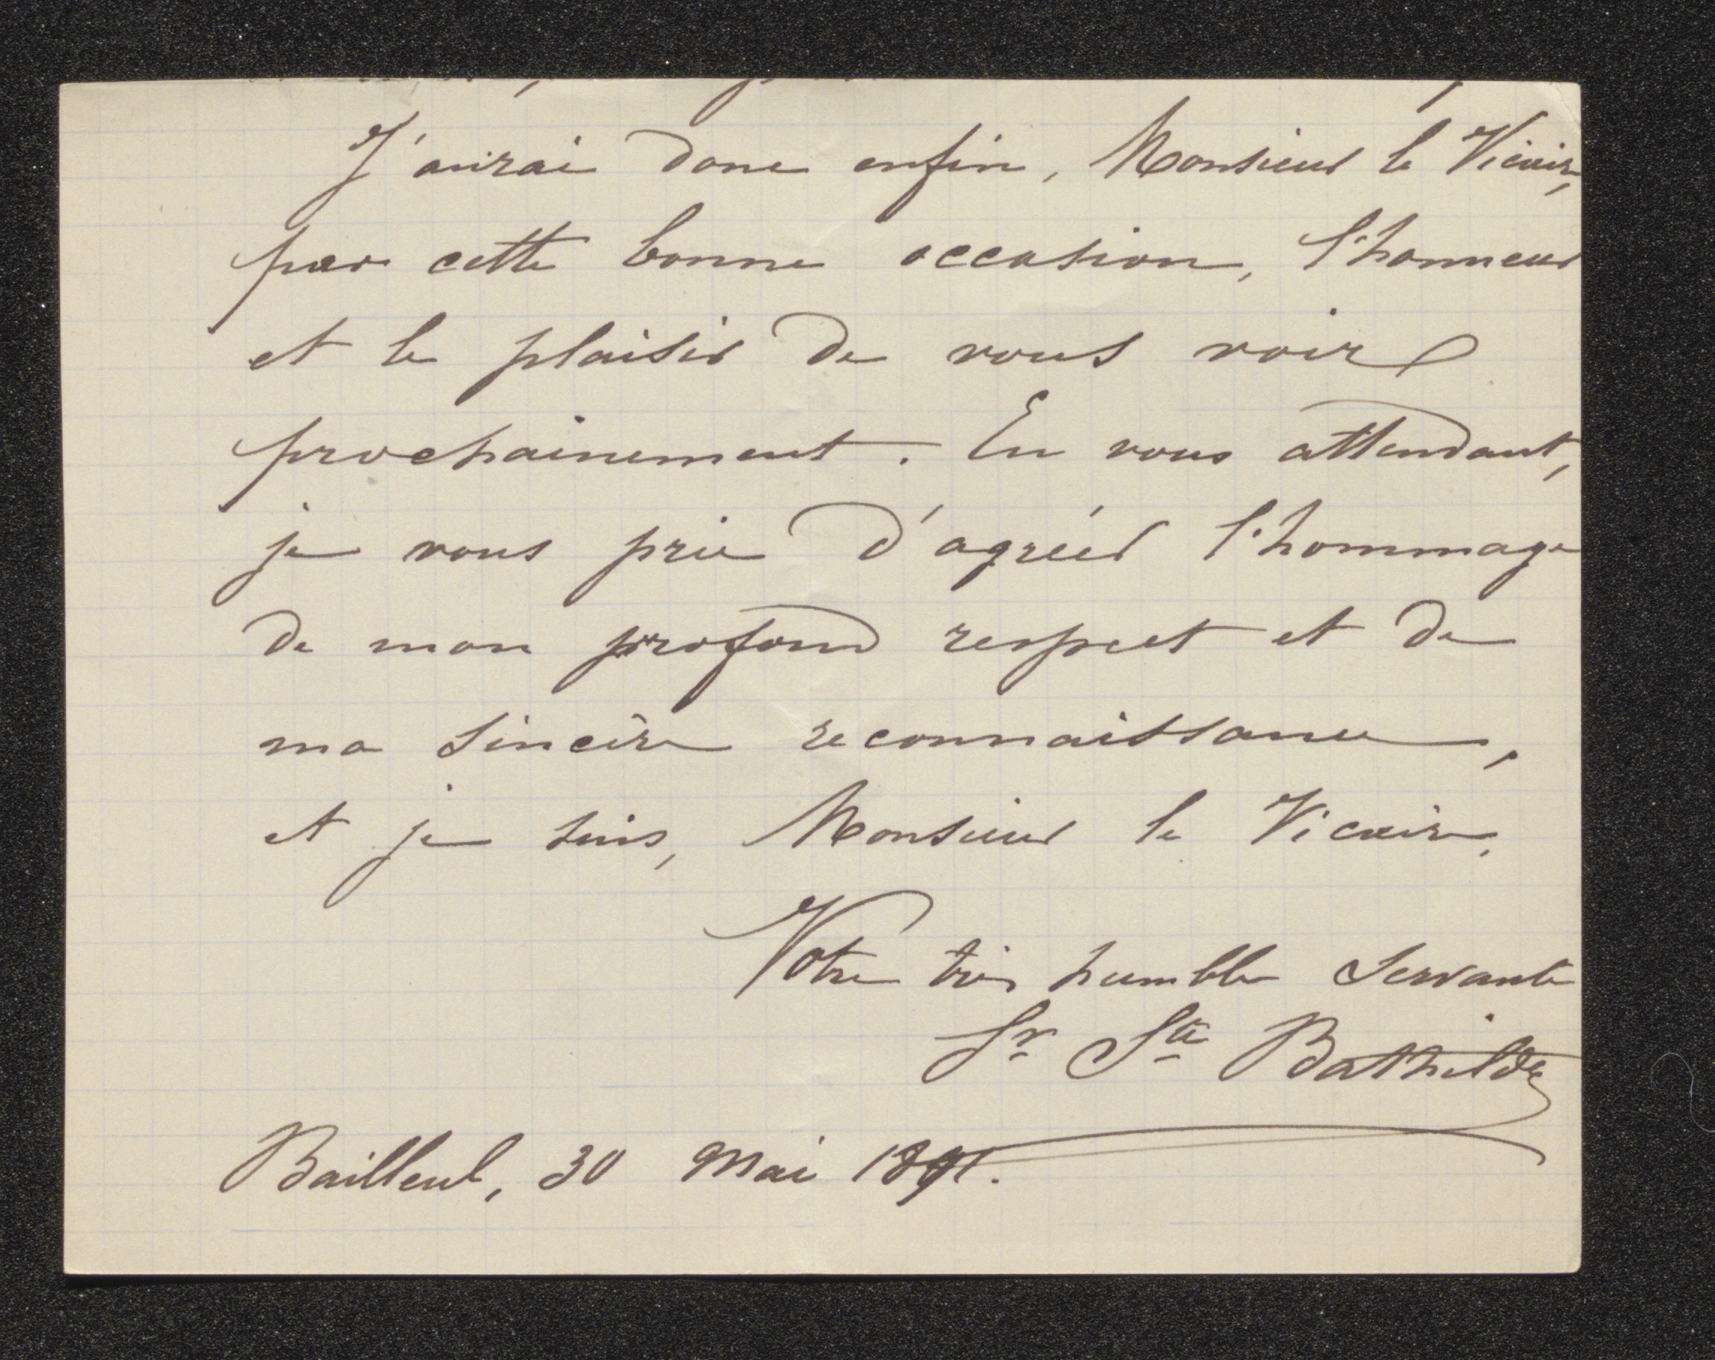 J'aurai donc enfin, Monsieur le Vicaire,
par cette bonne occasion, l'honneur
et le plaisir de vous voir
prochainement. En vous attendant,
je vous prie d'agréer l'hommage
de mon profond respect et de
ma sincère reconnaissance,
et je suis, Monsieur le Vicaire,
Votre très humble Servante
Sr Ste Bathilde
Bailleul, 30 Mai 1891.